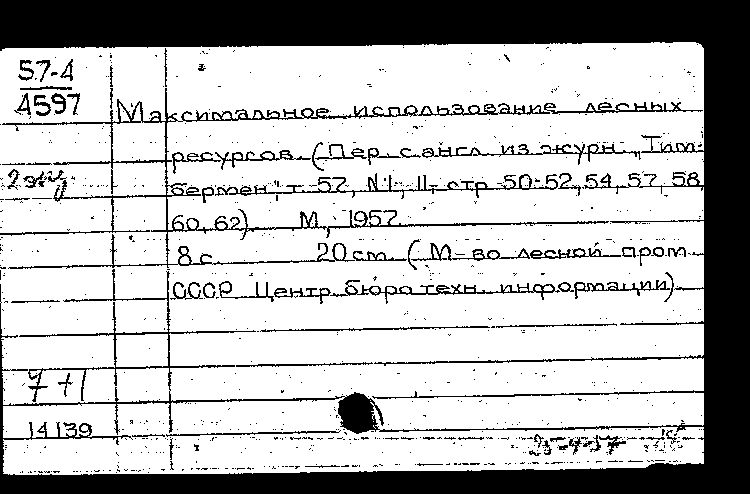 57-4
4597
Максимальное использование лесных
2 экз.
ресурсов. (Пер. с англ. из журн. „Тим-
бермен", т. 57, №1, II, стр. 50-52, 54, 57, 58,
60, 62). М., 1957.
8 с. 20 cm. (М-во лесной пром.
СССР. Центр. бюро техн. информации).
7 + 1
14139
25-4-57